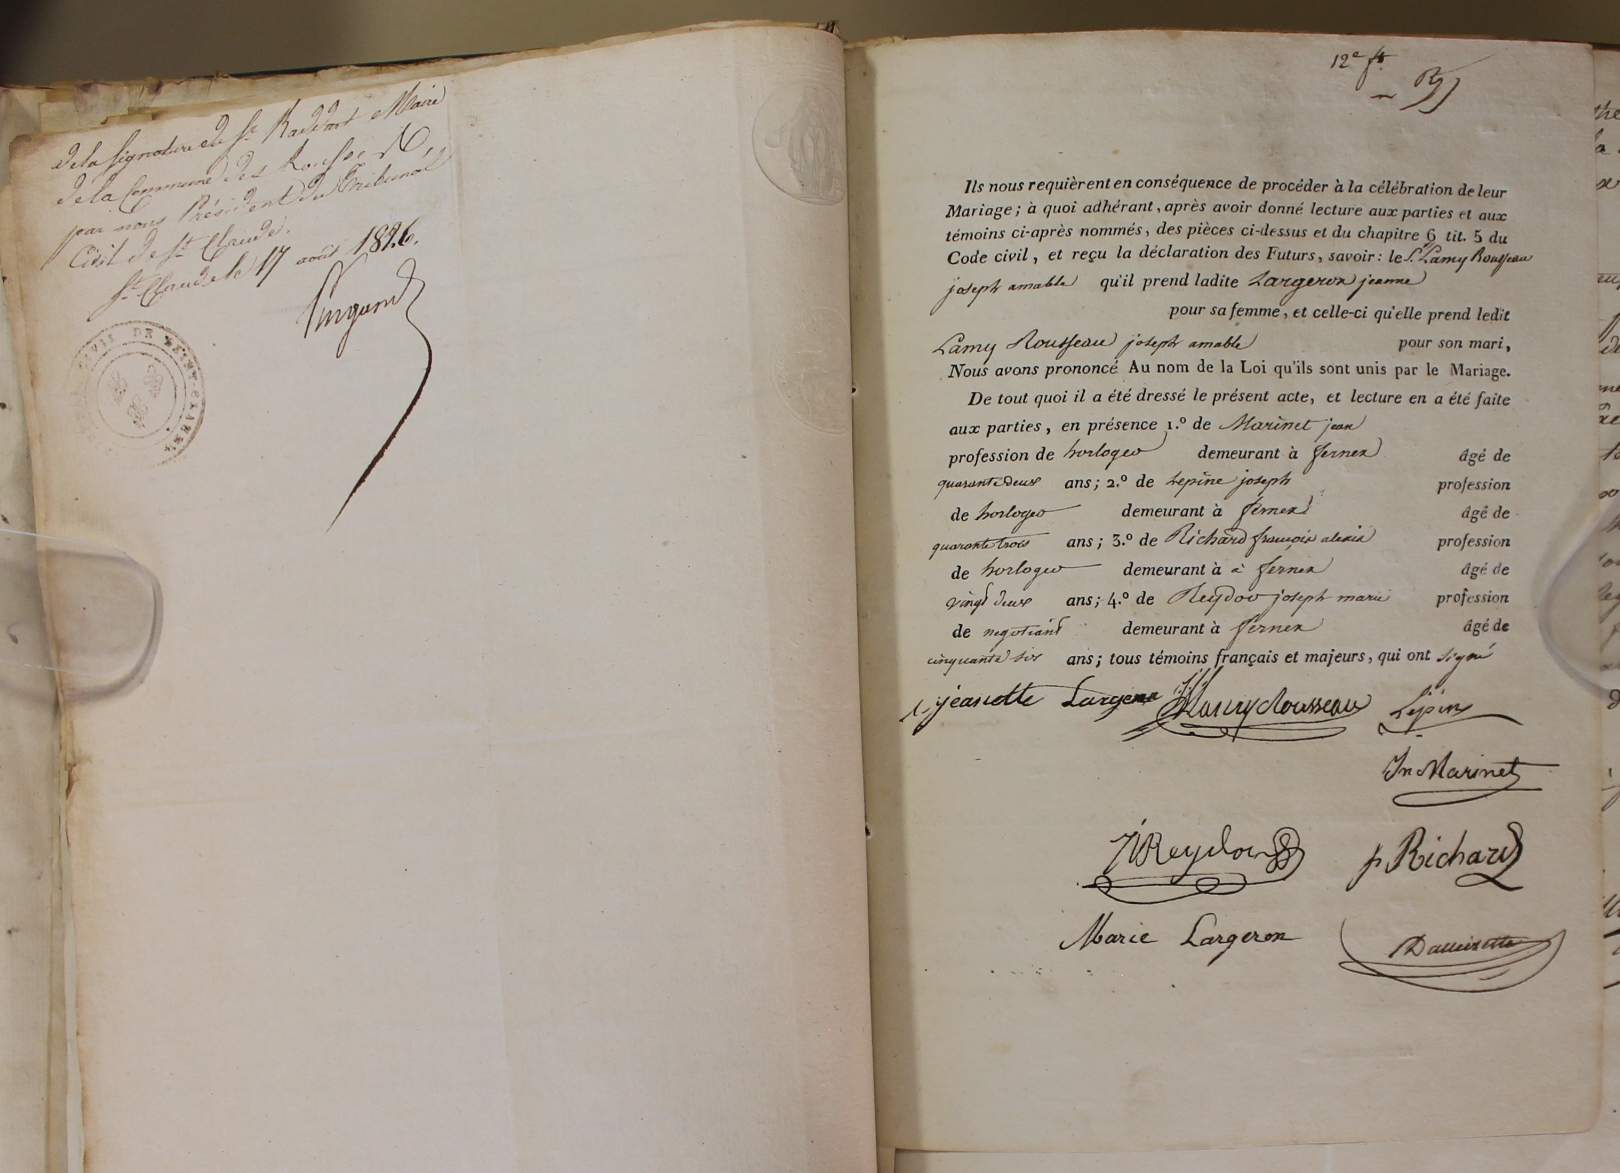 de la signature de Sr. Raddant Maire
de la Commune des Rousses
par nous Président du Tribunal
Civil de St. Claude.
St. Claude le 17 août 1826.
CIVIL DE SAINT CLAUDE
12e ft.
Ils nous requièrent en conséquence de procéder à la célébration de leur
Mariage; à quoi adhérant, après avoir donné lecture aux parties et aux
témoins ci-après nommés, des pièces ci-dessus et du chapitre 6 tit. 5 du
Code civil, et reçu la déclaration des Futurs, savoir: le S. Lamy Rousseau
joseph amable qu'il prend ladite Largeron jeanne
pour sa femme, et celle-ci qu'elle prend ledit
Lamy Rousseau joseph amable pour son mari,
Nous avons prononcé Au nom de la Loi qu'ils sont unis par le Mariage.
De tout quoi il a été dressé le présent acte, et lecture en a été faite
aux parties, en présence 1.º de Marinet jean
profession de horloger demeurant à fernex âgé de
quarante deux ans; 2.º de Lepine joseph profession
de horloger demeurant à fernex âgé de
quarante trois ans; 3.º de Richard françois alexis profession
de horloger demeurant à à fernex âgé de
vingt deux ans; 4.º de Reydor joseph marie profession
de negotiant demeurant à fernex âgé de
cinquante six ans; tous témoins français et majeurs, qui ont signé
jeanette Largeron Lamy Rousseau Lépine
Jn Marinet
Reydor f Richard
Marie Largeron